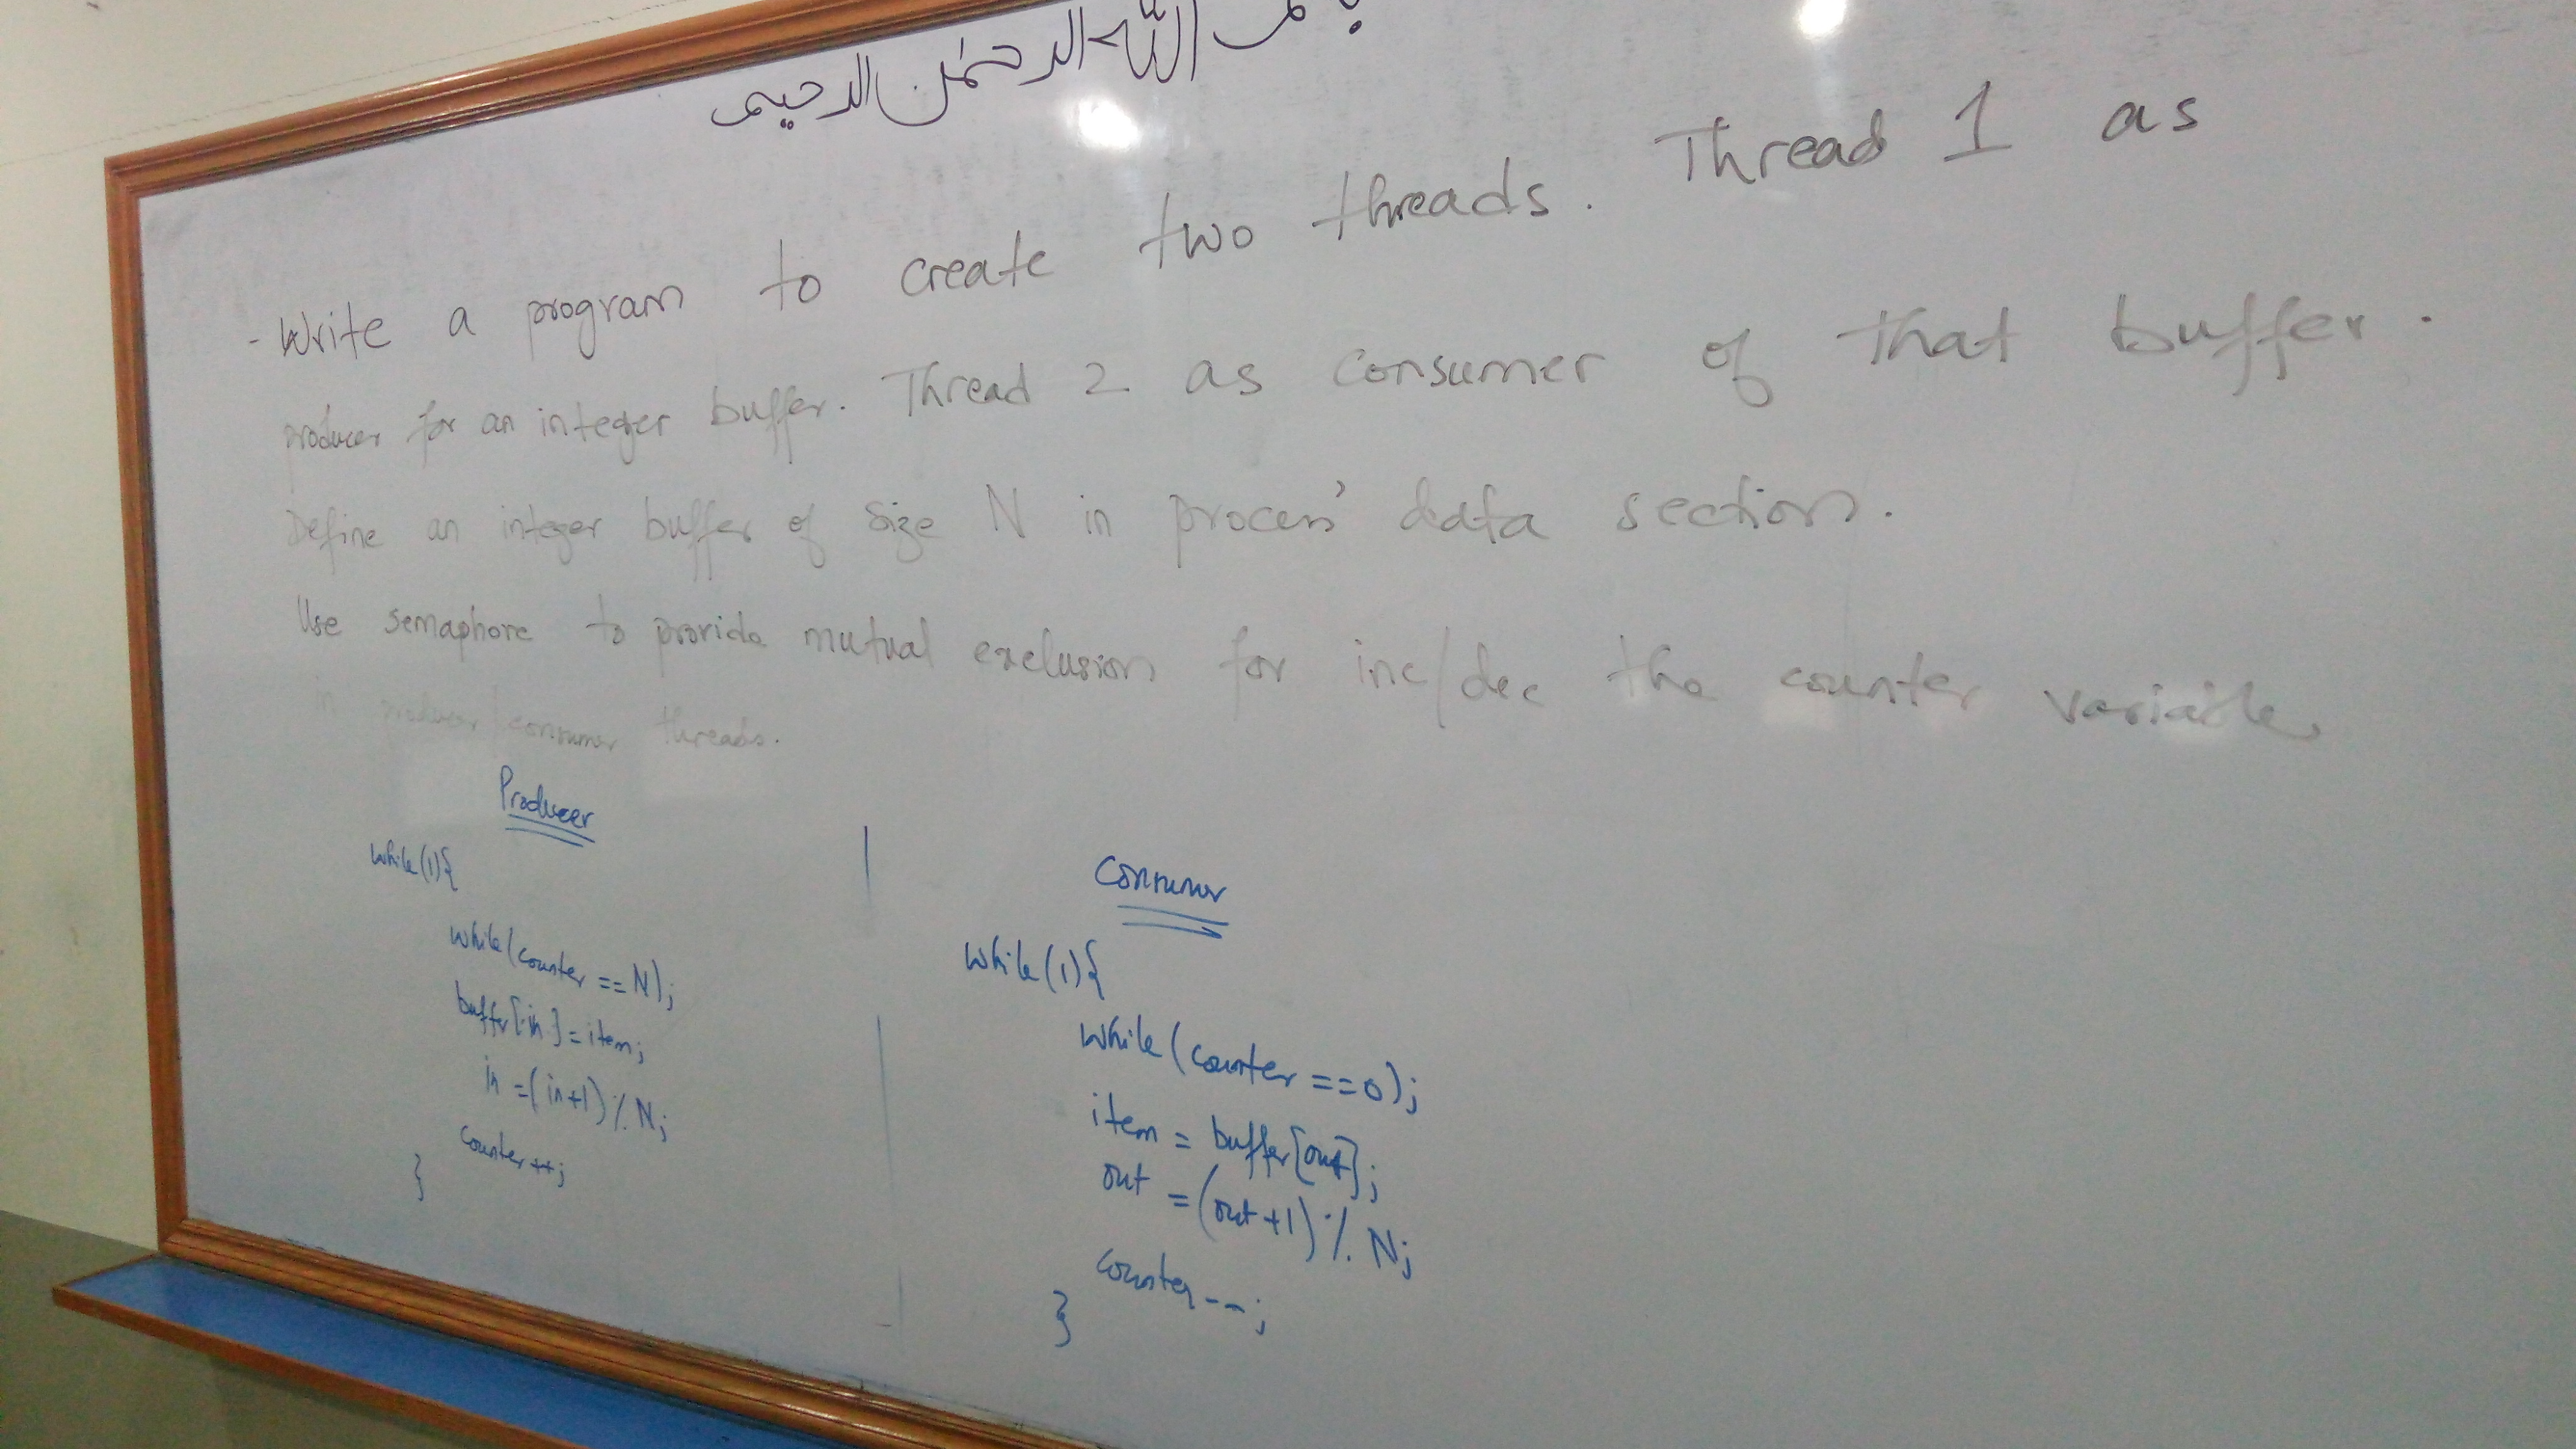 بسم الله الرحمٰن الرحيم
- Write a program to create two threads. Thread 1 as
producer for an integer buffer. Thread 2 as consumer of that buffer.
Define an integer buffer of size N in process' data section.
Use semaphore to provide mutual exclusion for inc/dec the counter variable
in producer/consumer threads.
Producer
while(1){
while(counter == N);
buffer[in] = item;
in = (in+1) % N;
counter++;
}
Consumer
while(1){
while(counter == 0);
item = buffer[out];
out = (out+1) % N;
counter--;
}